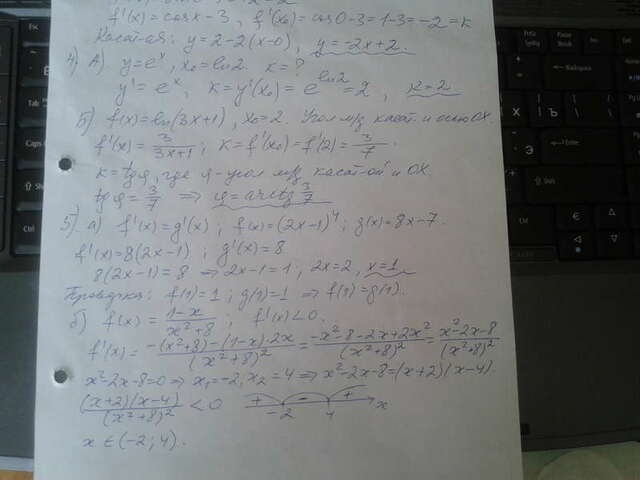 f'(x) = cos x - 3, f'(x₀) = cos 0 - 3 = 1 - 3 = -2 = k
Касат-ая: y = 2 - 2(x-0), y = -2x + 2.
4) А) y = eˣ, x₀ = ln 2. k = ?
y' = eˣ, k = y'(x₀) = e^{ln 2} = 2, k = 2
Б) f(x) = ln(3x+1), x₀ = 2. Угол м/у касат. и осью OX.
f'(x) = 3/(3x+1); k = f'(x₀) = f'(2) = 3/7.
k = tg φ, где φ - угол м/у касат-ой и OX
tg φ = 3/7 ⇒ φ = arctg 3/7
5) а) f'(x) = g'(x); f(x) = (2x-1)⁴; g(x) = 8x - 7.
f'(x) = 8(2x-1); g'(x) = 8
8(2x-1) = 8 ⇒ 2x-1 = 1; 2x = 2, x = 1
Проверка: f(1) = 1; g(1) = 1 ⇒ f(1) = g(1).
б) f(x) = (1-x)/(x²+8); f'(x) < 0.
f'(x) = (-(x²+8) - (1-x)·2x)/(x²+8)² = (-x²-8-2x+2x²)/(x²+8)² = (x²-2x-8)/(x²+8)²
x²-2x-8=0 ⇒ x₁ = -2; x₂ = 4 ⇒ x²-2x-8 = (x+2)(x-4).
(x+2)(x-4)/(x²+8)² < 0 + - + -2 4 x
x ∈ (-2; 4).